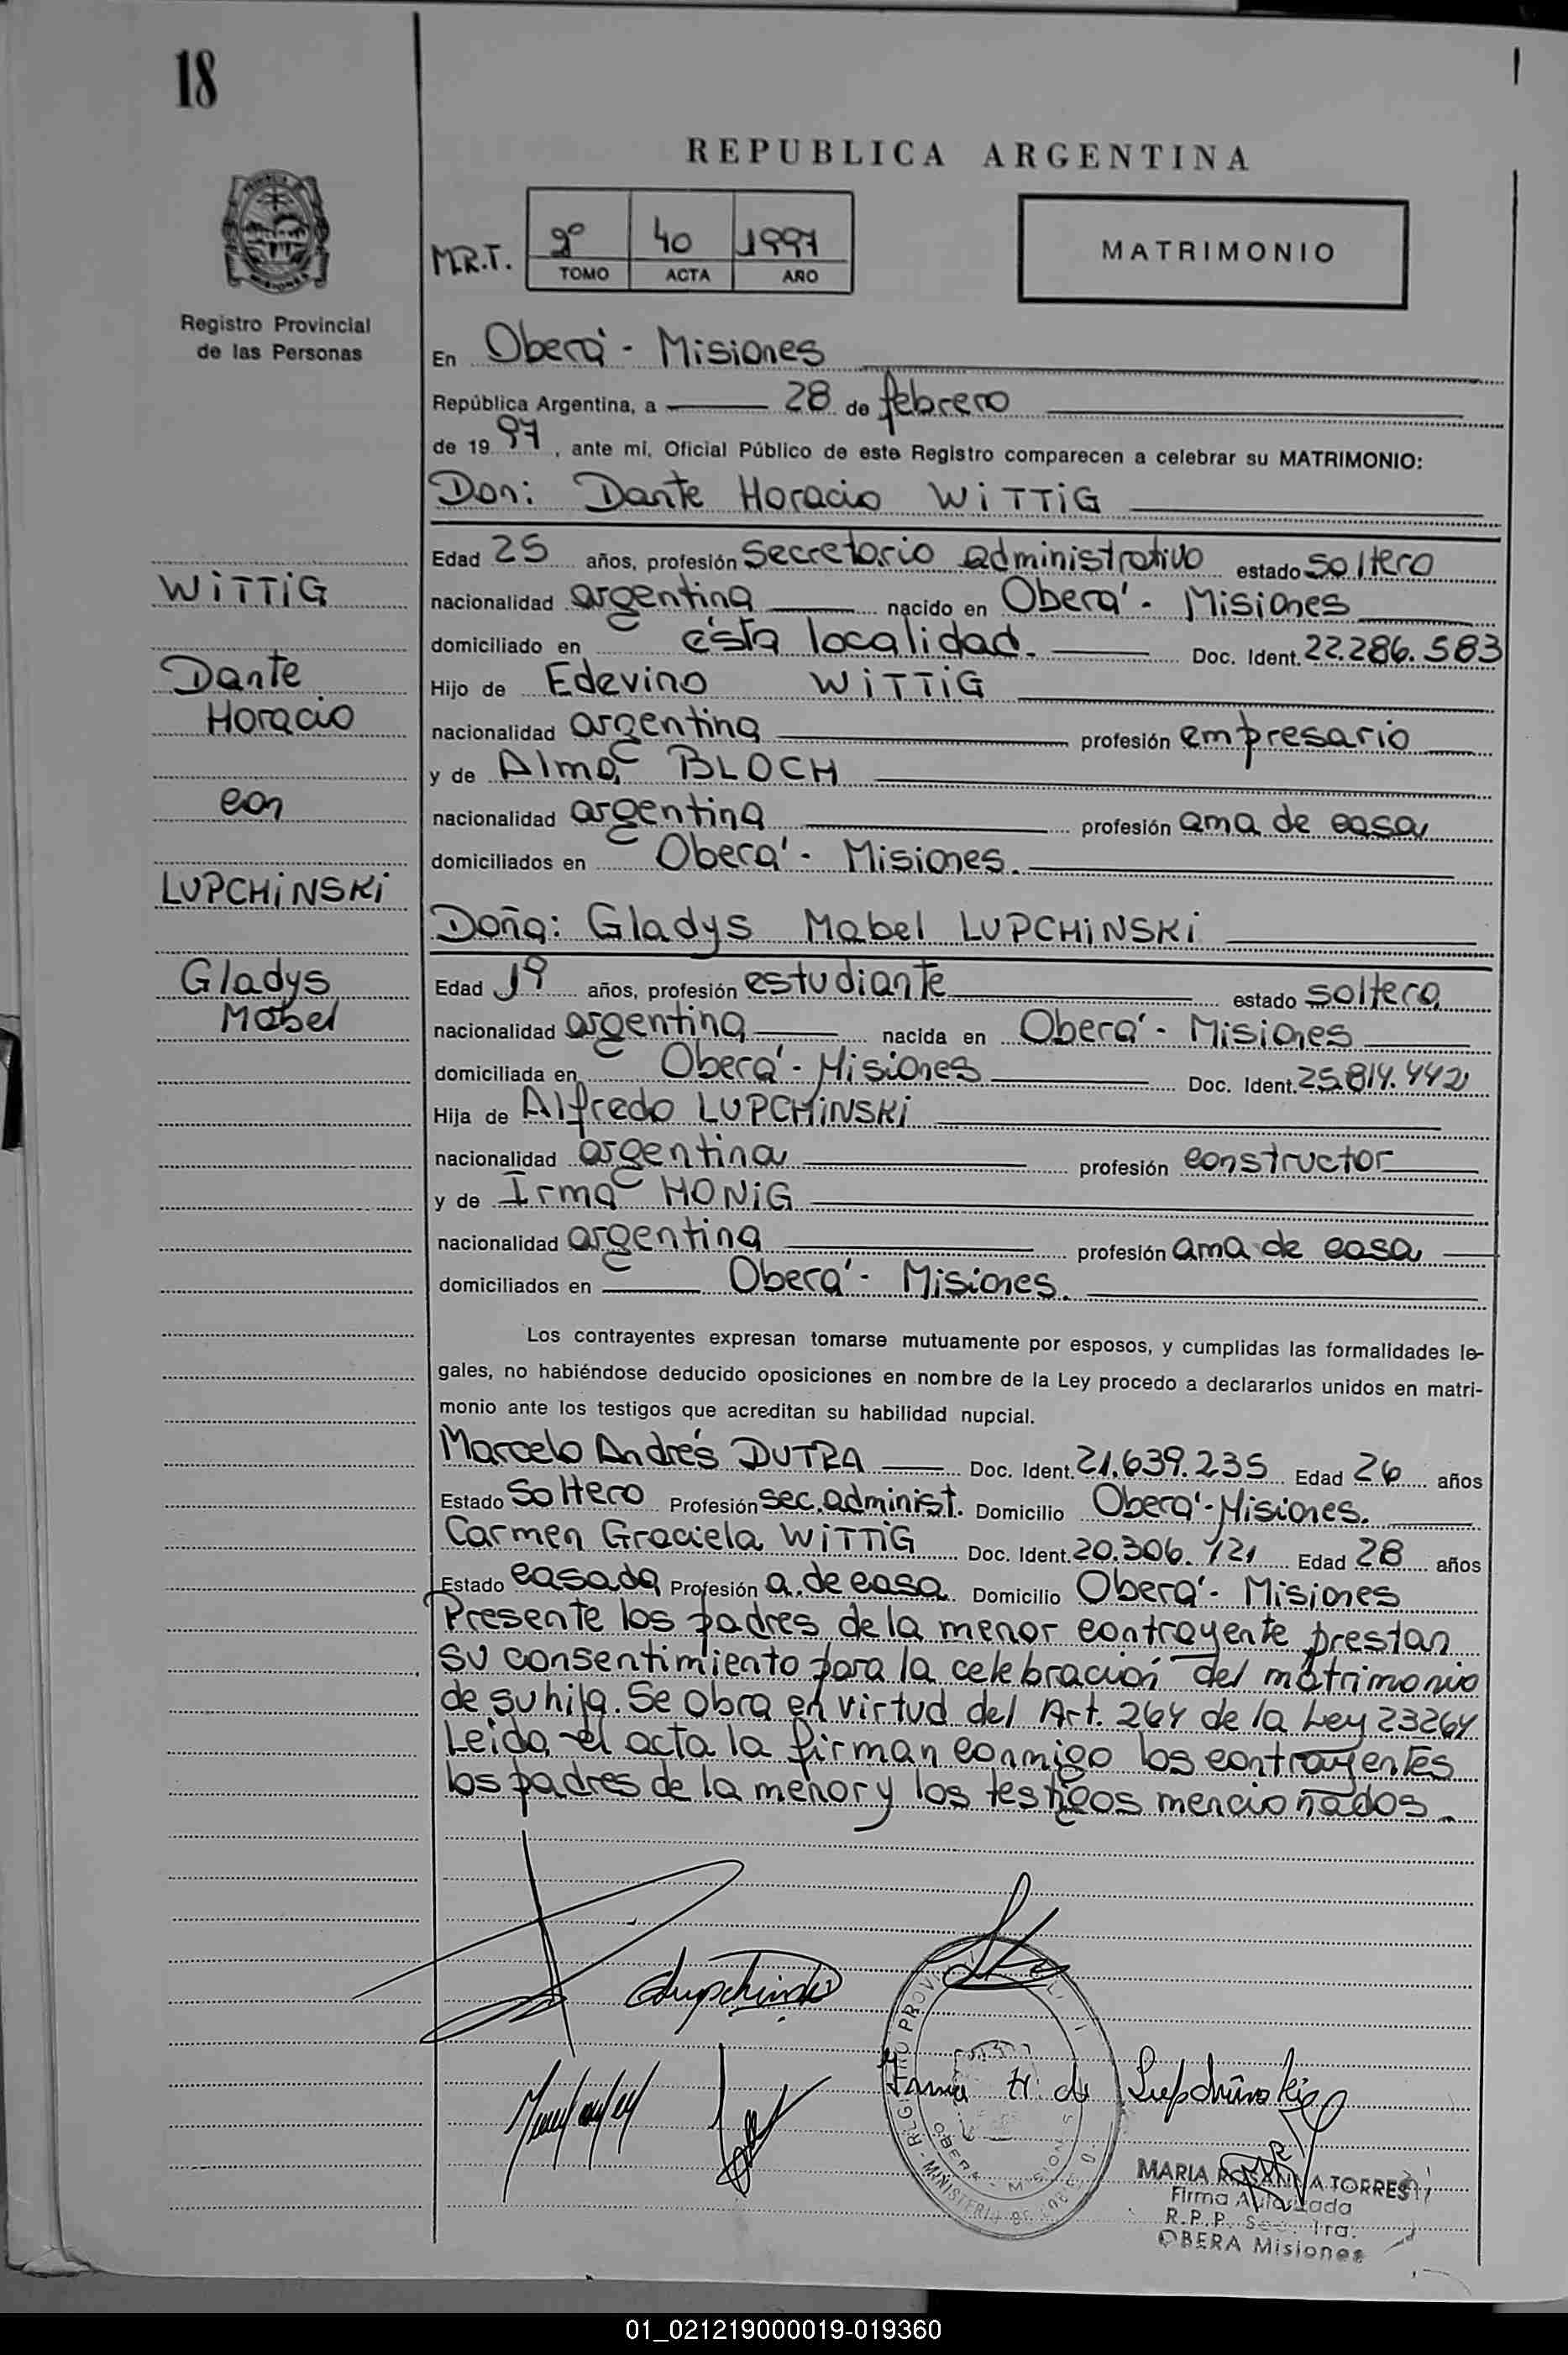 18
REPUBLICA ARGENTINA
M.R.T.
2º 40 1997
TOMO ACTA AÑO
MATRIMONIO
Registro Provincial
de las Personas
En Oberá - Misiones
República Argentina, a 28 de febrero
de 1997, ante mí, Oficial Público de este Registro comparecen a celebrar su MATRIMONIO:
Don: Dante Horacio WiTTiG
Edad 25 años, profesión secretario administrativo estado soltero
WiTTiG
nacionalidad argentina nacido en Oberá - Misiones
domiciliado en ésta localidad. Doc. Ident. 22.286.583
Dante
Hijo de Edevino WiTTiG
Horacio
nacionalidad argentina profesión empresario
y de Alma BLOCH
con
nacionalidad argentina profesión ama de casa
domiciliados en Oberá - Misiones.
LUPCHiNSKi
Doña: Gladys Mabel LUPCHiNSKi
Gladys
Edad 19 años, profesión estudiante estado soltera
Mabel
nacionalidad argentina nacida en Oberá - Misiones
domiciliada en Oberá - Misiones Doc. Ident. 25.814.442
Hija de Alfredo LUPCHiNSKi
nacionalidad argentina profesión constructor
y de Irma HONiG
nacionalidad argentina profesión ama de casa
domiciliados en Oberá - Misiones.
Los contrayentes expresan tomarse mutuamente por esposos, y cumplidas las formalidades le-
gales, no habiéndose deducido oposiciones en nombre de la Ley procedo a declararlos unidos en matri-
monio ante los testigos que acreditan su habilidad nupcial.
Marcelo Andrés DUTRA Doc. Ident. 21.639.235 Edad 26 años
Estado Soltero Profesión sec. administ. Domicilio Oberá - Misiones.
Carmen Graciela WiTTiG Doc. Ident. 20.306.121 Edad 28 años
Estado casada Profesión a. de casa Domicilio Oberá - Misiones
Presente los padres de la menor contrayente prestan
su consentimiento para la celebración del matrimonio
de su hija. Se obra en virtud del Art. 264 de la Ley 23264.
Leida el acta la firman conmigo los contrayentes
los padres de la menor y los testigos mencionados.
Lupchinski
Irma H. de Lupchinski
MARIA TORRES
Firma Autorizada
R.P.P. Sec. 1ra.
OBERA Misiones
01_021219000019-019360